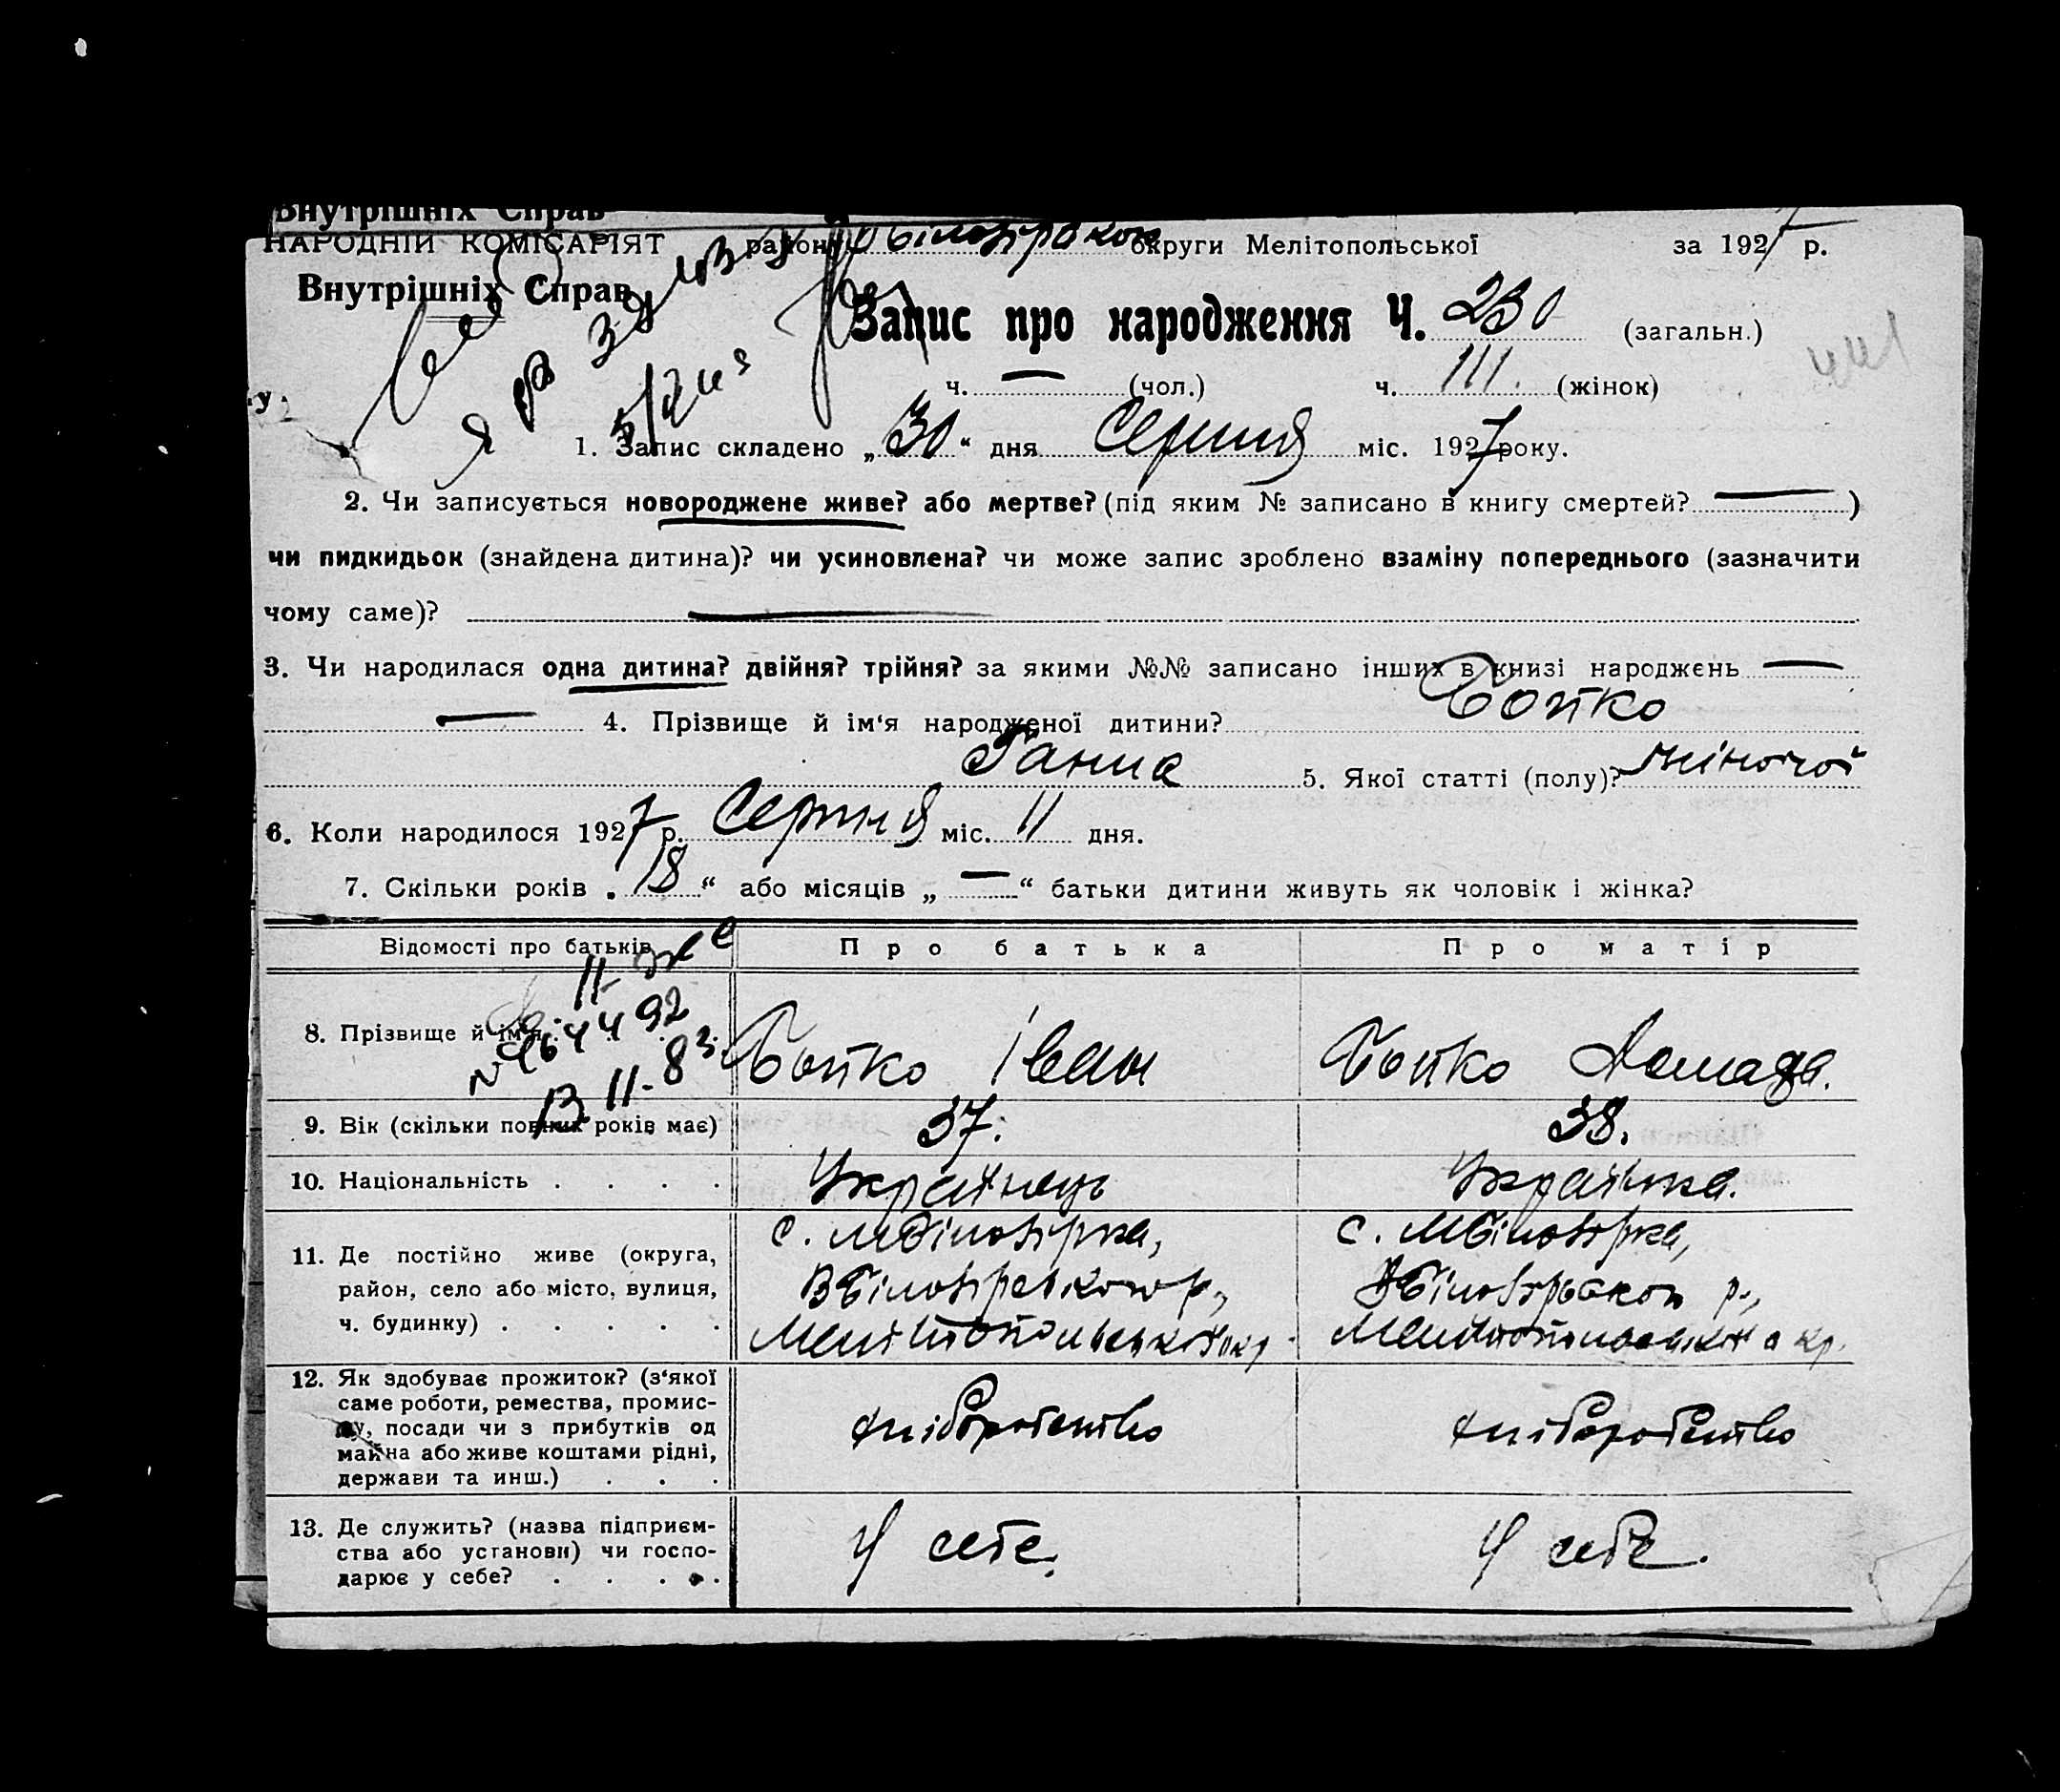 Внутрішніх Справ
НАРОДНІЙ КОМІСАРІЯТ району округи Мелітопольської за 1927 р.
Внутрішніх Справ
Запис про народження Ч. 230 (загальн.)
ч. — (чол.) ч. 111. (жінок)
1. Запис складено „30“ дня Серпня міс. 1927 року.
2. Чи записується новороджене живе? або мертве? (під яким № записано в книгу смертей? — )
чи пидкидьок (знайдена дитина)? чи усиновлена? чи може запис зроблено взаміну попереднього (зазначити
чому саме)? —
3. Чи народилася одна дитина? двійня? трійня? за якими №№ записано інших в книзі народжень —
— 4. Прізвище й ім‘я народженої дитини? Бойко
Ганна 5. Якої статті (полу)? жіночої
6. Коли народилося 1927 р. Серпня міс. 11 дня.
7. Скільки років „18“ або місяців „—“ батьки дитини живуть як чоловік і жінка?
Відомості про батьків Про батька Про матір
8. Прізвище й ім‘я Бойко Іван Бойко
9. Вік (скільки повних років має) 37. 38.
10. Національність . . . . Українець Українка.
11. Де постійно живе (округа, с. МБілозірка, с. МБілозірка,
район, село або місто, вулиця, ВБілозірського р., ВБілозірського р.,
ч. будинку) . . . . . Мелітопольської окр. Мелітопольської окр.
12. Як здобуває прожиток? (з‘якої
саме роботи, ремества, промис-
лу, посади чи з прибутків од хліборобство хліборобство
майна або живе коштами рідні,
держави та инш.) . . .
13. Де служить? (назва підприєм-
ства або установи) чи госпо- У себе. У себе.
дарює у себе? . . . .